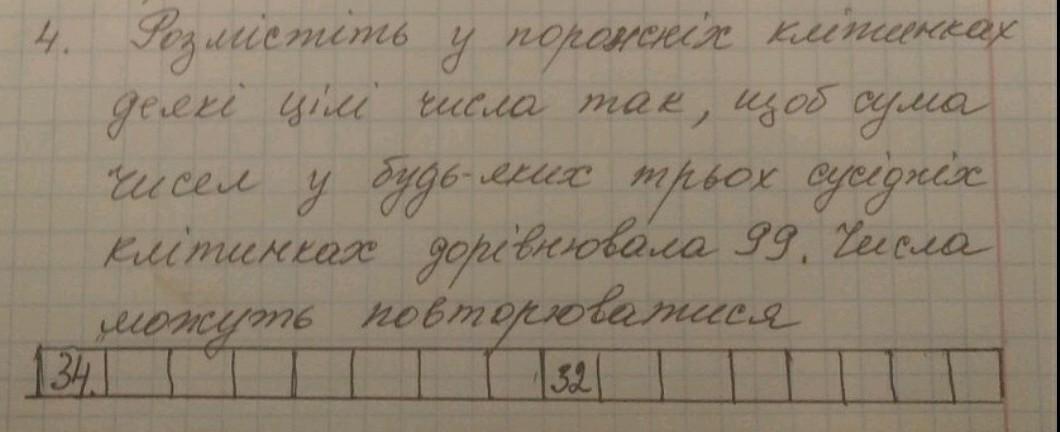 4. Розмістіть у порожніх клітинках
деякі цілі числа так, щоб сума
чисел у будь-яких трьох сусідніх
клітинках дорівнювала 99. Числа
можуть повторюватися
34. 32